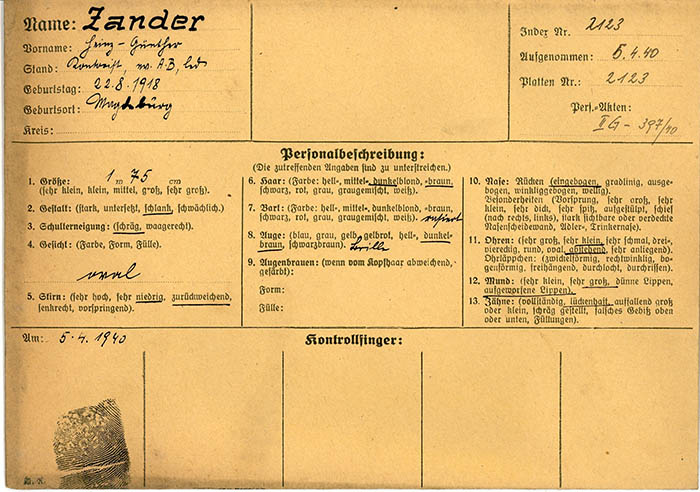 Name: Zander
Vorname: Heinz-Günther
Stand: ev. A.B, led
Geburtstag: 22.8.1918
Geburtsort: Magdeburg
Kreis:
Index Nr. 2123
Aufgenommen: 5.4.40
Platten Nr.: 2123
Pers.-Akten:
II G - 397/40
Personalbeschreibung:
(Die zutreffenden Angaben sind zu unterstreichen.)
1. Größe: 1 m 75 cm
(sehr klein, klein, mittel, groß, sehr groß).
2. Gestalt: (stark, untersetzt, schlank, schwächlich).
3. Schulterneigung: (schräg, waagerecht).
4. Gesicht: (Farbe, Form, Fülle).
oval
5. Stirn: (sehr hoch, sehr niedrig, zurückweichend,
senkrecht, vorspringend).
6. Haar: (Farbe: hell-, mittel-, dunkelblond, -braun,
schwarz, rot, grau, graugemischt, weiß).
7. Bart: (Farbe: hell-, mittel-, dunkelblond, -braun,
schwarz, rot, grau, graugemischt, weiß). rasiert
8. Auge: (blau, grau, gelb, gelbrot, hell-, dunkel-
braun, schwarzbraun). Brille
9. Augenbrauen: (wenn vom Kopfhaar abweichend,
gefärbt):
Form:
Fülle:
10. Nase: Rücken (eingebogen, gradlinig, ausge-
bogen, winkliggebogen, wellig).
Besonderheiten (Vorsprung, sehr groß, sehr
klein, sehr dick, sehr spitz, aufgestülpt, schief
(nach rechts, links), stark sichtbare oder verdeckte
Nasenscheidewand, Adler-, Trinkernase).
11. Ohren: (sehr groß, sehr klein, sehr schmal, drei-
viereckig, rund, oval, abstehend, sehr anliegend).
Ohrläppchen: (zwickelförmig, rechtwinklig, bo-
genförmig, freihängend, durchlocht, durchrissen).
12. Mund: (sehr klein, sehr groß, dünne Lippen,
aufgeworfene Lippen).
13. Zähne: (vollständig, lückenhaft, auffallend groß
oder klein, schräg gestellt, falsches Gebiß oben
oder unten, Füllungen).
Am: 5.4.1940
Kontrollfinger: